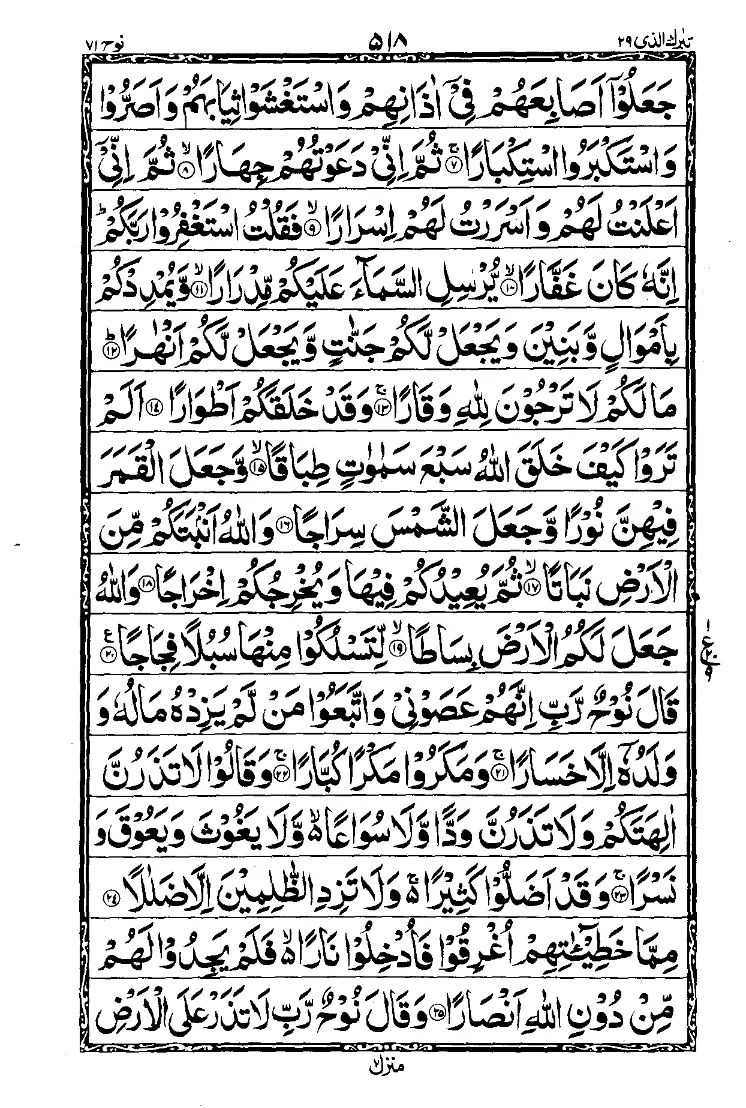 تبٰرك الذی ٢٩ ٥١٨ نوح ٧١
جَعَلُوْۤا اَصَابِعَهُمْ فِيْۤ اٰذَانِهِمْ وَاسْتَغْشَوْا ثِيَابَهُمْ وَاَصَرُّوْا
وَاسْتَكْبَرُوا اسْتِكْبَارًا ۚ‏﴿۷﴾ ثُمَّ اِنِّيْ دَعَوْتُهُمْ جِهَارًا ۙ‏﴿۸﴾ ثُمَّ اِنِّيْۤ
اَعْلَنْتُ لَهُمْ وَاَسْرَرْتُ لَهُمْ اِسْرَارًا ۙ‏﴿۹﴾ فَقُلْتُ اسْتَغْفِرُوْا رَبَّكُمْ ؕ
اِنَّهٗ كَانَ غَفَّارًا ۙ‏﴿۱۰﴾ يُّرْسِلِ السَّمَآءَ عَلَيْكُمْ مِّدْرَارًا ۙ‏﴿۱۱﴾ وَّيُمْدِدْكُمْ
بِاَمْوَالٍ وَّبَنِيْنَ وَيَجْعَلْ لَّكُمْ جَنّٰتٍ وَّيَجْعَلْ لَّكُمْ اَنْهٰرًا ؕ‏﴿۱۲﴾
مَا لَكُمْ لَا تَرْجُوْنَ لِلّٰهِ وَقَارًا ۚ‏﴿۱۳﴾ وَقَدْ خَلَقَكُمْ اَطْوَارًا‏﴿۱٤﴾ اَلَمْ
تَرَوْا كَيْفَ خَلَقَ اللّٰهُ سَبْعَ سَمٰوٰتٍ طِبَاقًا ۙ‏﴿۱٥﴾ وَّجَعَلَ الْقَمَرَ
فِيْهِنَّ نُوْرًا وَّجَعَلَ الشَّمْسَ سِرَاجًا‏﴿۱٦﴾ وَاللّٰهُ اَنْۢبَتَكُمْ مِّنَ
الْاَرْضِ نَبَاتًا ۙ‏﴿۱۷﴾ ثُمَّ يُعِيْدُكُمْ فِيْهَا وَيُخْرِجُكُمْ اِخْرَاجًا‏﴿۱۸﴾ وَاللّٰهُ
جَعَلَ لَكُمُ الْاَرْضَ بِسَاطًا ۙ‏﴿۱۹﴾ لِّتَسْلُكُوْا مِنْهَا سُبُلًا فِجَاجًا‏﴿۲۰﴾ ع
قَالَ نُوْحٌ رَّبِّ اِنَّهُمْ عَصَوْنِيْ وَاتَّبَعُوْا مَنْ لَّمْ يَزِدْهُ مَالُهٗ وَ
وَلَدُهٗۤ اِلَّا خَسَارًا ۚ‏﴿۲۱﴾ وَمَكَرُوْا مَكْرًا كُبَّارًا ۚ‏﴿۲۲﴾ وَقَالُوْا لَا تَذَرُنَّ
اٰلِهَتَكُمْ وَلَا تَذَرُنَّ وَدًّا وَّلَا سُوَاعًا ۙ وَّلَا يَغُوْثَ وَيَعُوْقَ وَ
نَسْرًا ۚ‏﴿۲۳﴾ وَقَدْ اَضَلُّوْا كَثِيْرًا ۚ وَلَا تَزِدِ الظّٰلِمِيْنَ اِلَّا ضَلٰلًا‏﴿۲٤﴾
مِمَّا خَطِيْٓـٰٔتِهِمْ اُغْرِقُوْا فَاُدْخِلُوْا نَارًا ۙ فَلَمْ يَجِدُوْا لَهُمْ
مِّنْ دُوْنِ اللّٰهِ اَنْصَارًا‏﴿۲٥﴾ وَقَالَ نُوْحٌ رَّبِّ لَا تَذَرْ عَلَى الْاَرْضِ
منزل ٧